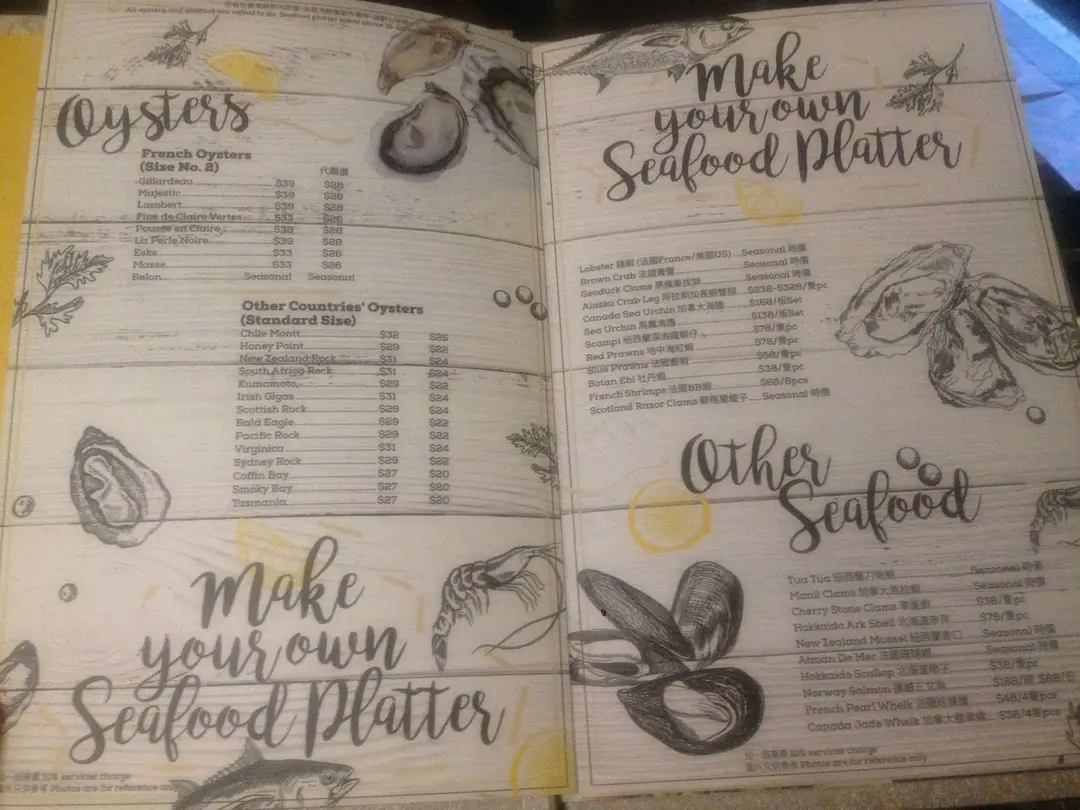 All oysters and seafood are
Seafood platter takes about
Oysters
French Oysters
(Size No. 2)
Gillardeau $39 $28
Majestic $39 $28
Lambert $39 $28
Fine de Claire Vertes $33 $26
Pousse en Claire $39 $28
La Perle Noire $39 $28
Eske $33 $26
Masse $33 $26
Belon Seasonal Seasonal
Other Countries' Oysters
(Standard Size)
Chile Montt $32 $25
Honey Point $29 $22
New Zealand Rock $31 $24
South Africa Rock $31 $24
Kumamoto $29 $22
Irish Gigas $31 $24
Scottish Rock $29 $24
Bald Eagle $29 $22
Pacific Rock $29 $22
Virginica $31 $24
Sydney Rock $29 $22
Coffin Bay $27 $20
Smoky Bay $27 $20
Tasmania $27 $20
Make
your own
Seafood Platter
10% services charge
Photos are for reference only
Make
your own
Seafood Platter
Lobster 龍蝦 (法國France/美國US) Seasonal 時價
Brown Crab 法國膏蟹 Seasonal 時價
Geoduck Clams Seasonal 時價
Alaska Crab Leg 阿拉斯加長腳蟹腳 $238-$328/隻pc
Canada Sea Urchin 加拿大海膽 $168/板Set
Sea Urchin 馬糞海膽 $138/板Set
Scampi 紐西蘭深海龍蝦仔 $78/隻pc
Red Prawns 地中海紅蝦 $78/隻pc
Blue Prawns 法國藍蝦 $58/隻pc
Botan Ebi 牡丹蝦 $38/隻pc
French Shrimps 法國BB蝦 $88/8pcs
Scotland Razor Clams 蘇格蘭蟶子 Seasonal 時價
Other
Seafood
Tua Tua Seasonal 時價
Manil Clams Seasonal 時價
Cherry Stone Clams $38/隻pc
Hokkaido Ark Shell 北海道赤貝 $78/隻pc
New Zealand Mussel 紐西蘭青口 Seasonal 時價
Atman De Mec Seasonal 時價
Hokkaido Scallop 北海道帶子 $38/隻pc
Norway Salmon 挪威三文魚 $168/
French Pearl Whelk $48/4隻pcs
Canada Jade Whelk $58/4隻pcs
10% services charge
Photos are for reference only